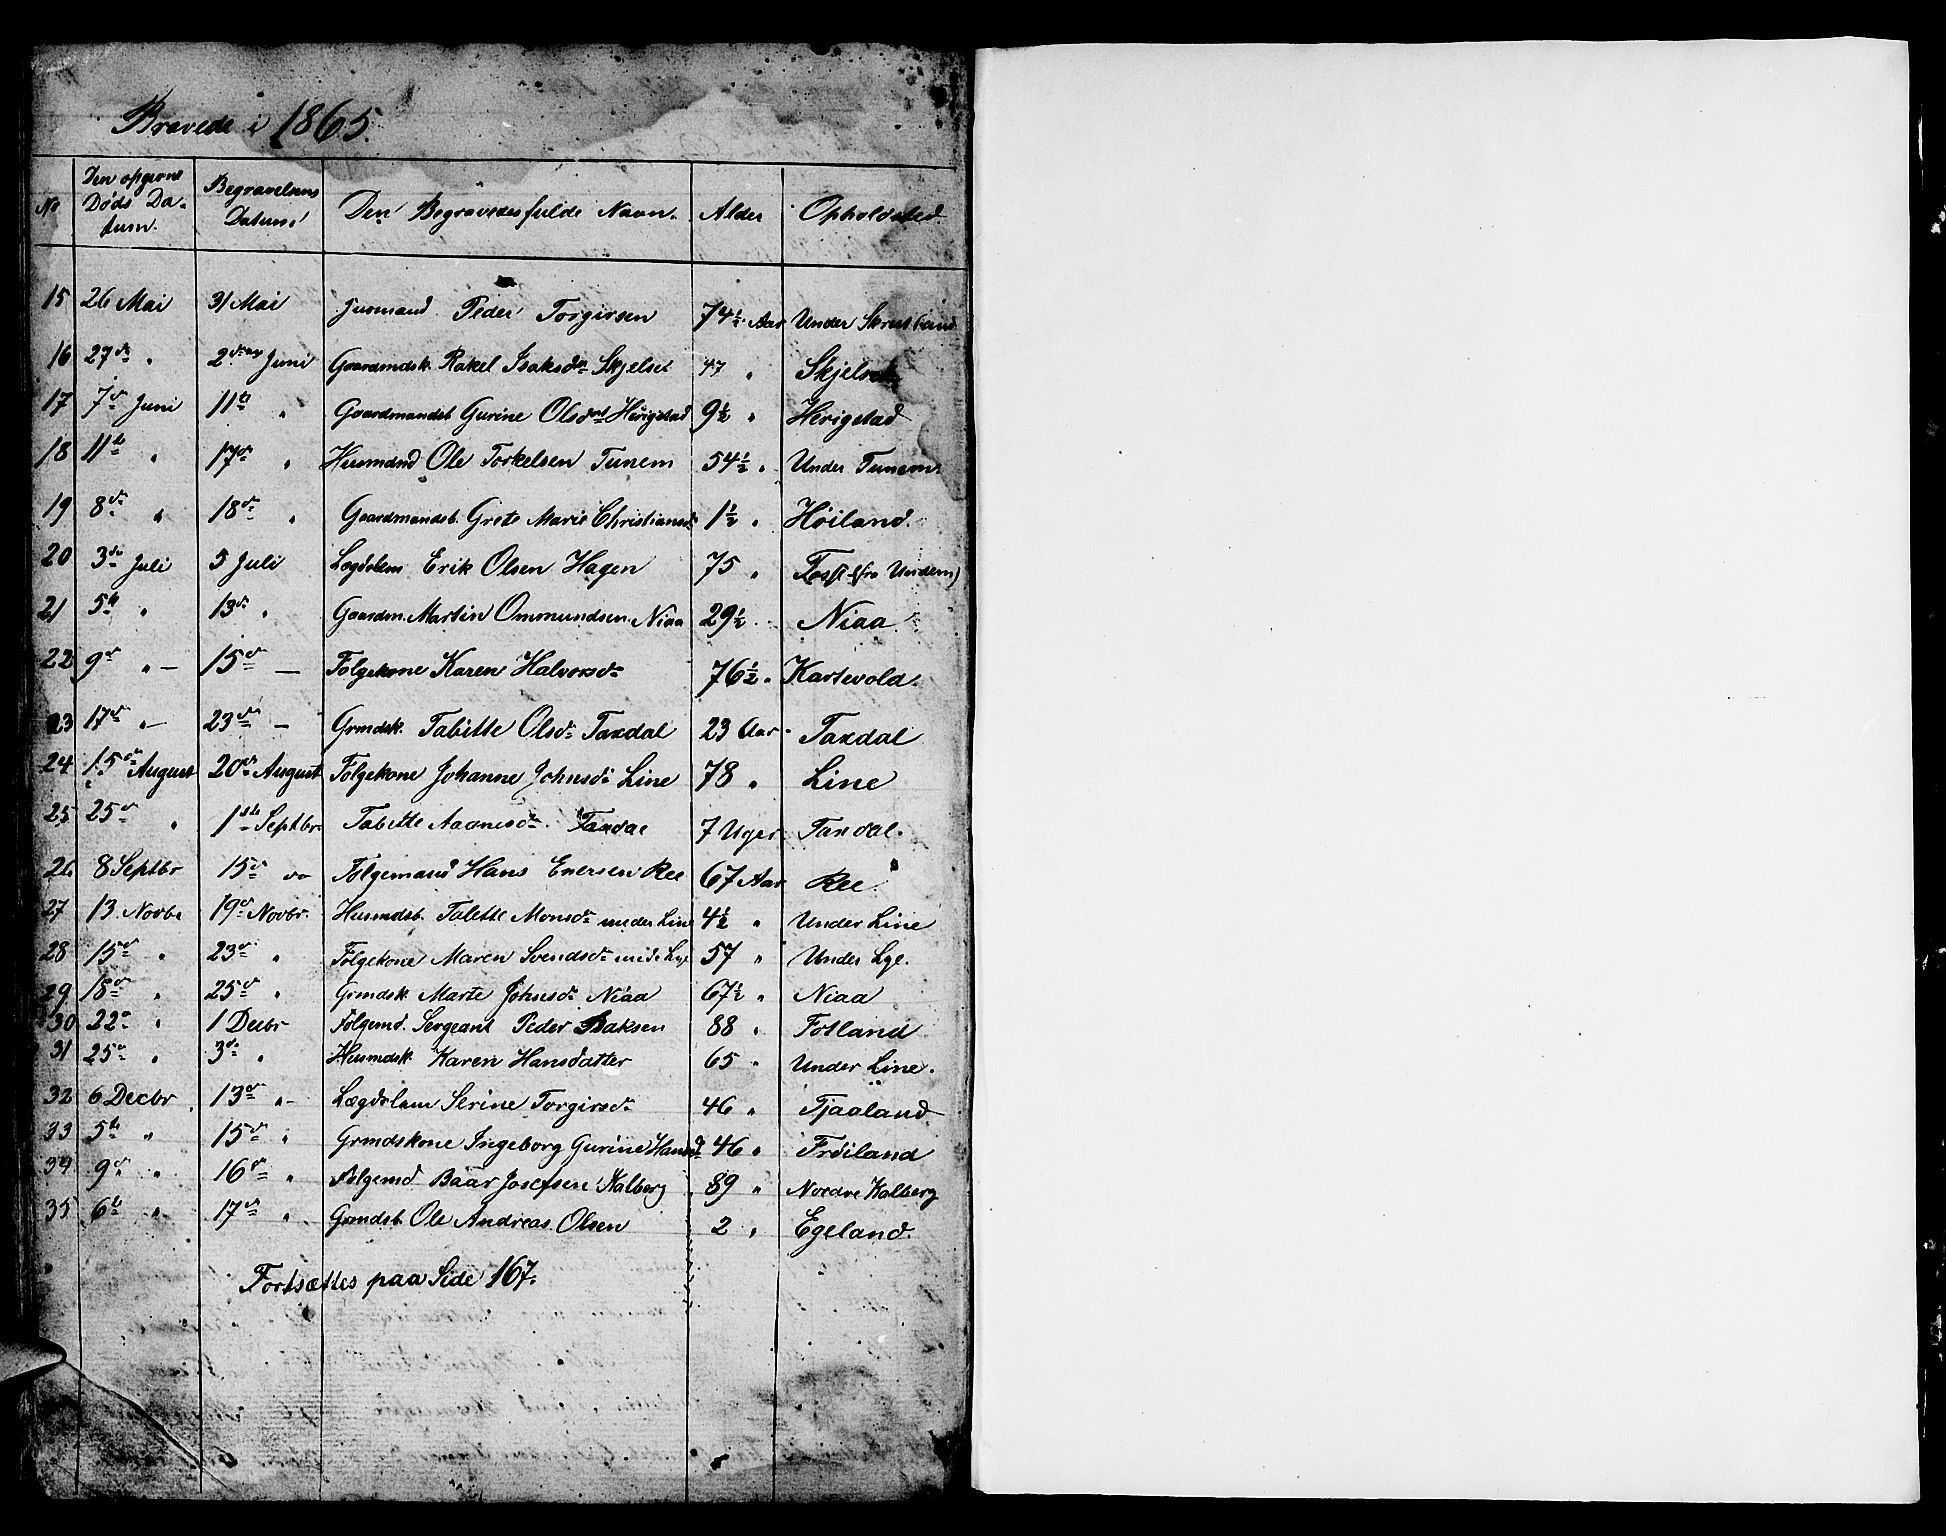 Bravede i 1865.
No Den opgivne Døds Datum. Begravelsens Datum. Den Begravedes fulde Navn. Alder Opholdsted.
15 26 Mai 31 Mai Huusmand Peder Torgirsen 74½ Aar Under Skrudland
16 27de " 2den Juni Gaardmdsk. Rakel Isaksdr Skjelset 47 " Skjelset
17 7de Juni 11te " Gaardmandsb. Gurine Olsdat Herigstad 9½ " Herigstad
18 11te " 17de " Husmand Ole Torkelsen Tunem 54½ " Under Tunem.
19 8de " 18de " Gaardmandsb. Grete Marie Christiansd. 1½ " Høiland.
20 3de Juli 5 Juli Lægdslem Erik Olsen Hagen 75 " (fra Undem)
21 5te " 13de " Gaardm. Martin Ommundsen Niaa 29½ Niaa
22 9de " — 15de — Følgekone Karen Halvorsdr 76½ " Kartevold.
23 17de " — 23de — Grmdsk. Tabitte Olsdr Taxdal 23 Aar Taxdal
24 15de August 20de August Følgekone Johanne Johnsdr Line 78 " Line
25 25de " 1ste Septbr. Tabitte Aanensdr Taxdal 7 Uger Taxdal.
26 8 Septbr 15de do Følgemand Hans Enersen Ree 67 Aar Ree
27 13. Novbr 19de Novbr. Husmdsb. Talette Monsdr under Line 4½ " Under Line
28 15de " 23de " Følgekone Maren Svendsdr und. Lye 57 " Under Lye.
29 18de " 25de " Grmdsk. Marte Johnsdr Niaa 67½ " Niaa
30 22de " 1 Decbr Følgemd. Sergeant Peder Isaksen 88 " Fotland
31 25de " 3de " Husmdsk. Karen Hansdatter 65 " Under Line.
32 6 Decbr. 13de " Lægdslem Serine Torgirsdr 46 " Tjaaland
33 5te " 15de " Grmdskone Ingeborg Gurine Hansd 46 " Frøiland
34 9de " 16de " Følgemd Baar Josefsen Kalberg 89 " Nordre Kalberg
35 6te " 17de " Grmdsb. Ole Andreas Olsen 2 " Egeland.
Fortsættes paa Side 167.